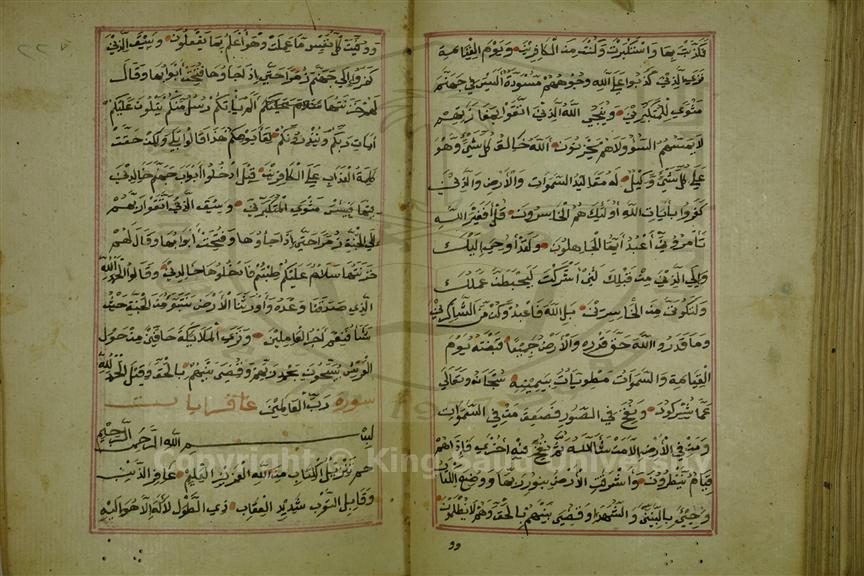 فكذبت بها واستكبرت وكنت من الكافرين ويوم القيامة
ترى الذين كذبوا على الله وجوههم مسودة أليس في جهنم
مثوى للمتكبرين وينجي الله الذين اتقوا بمفازتهم
لا يمسهم السوء ولا هم يحزنون الله خالق كل شيء وهو
على كل شيء وكيل له مقاليد السموات والأرض والذين
كفروا بآيات الله أولئك هم الخاسرون قل أفغير الله
تأمروني أعبد أيها الجاهلون ولقد أوحي إليك
وإلى الذين من قبلك لئن أشركت ليحبطن عملك
ولتكونن من الخاسرين بل الله فاعبد وكن من الشاكرين
وما قدروا الله حق قدره والأرض جميعا قبضته يوم
القيامة والسموات مطويات بيمينه سبحانه وتعالى
عما يشركون ونفخ في الصور فصعق من في السموات
ومن في الأرض إلا من شاء الله ثم نفخ فيه أخرى فإذا هم
قيام ينظرون وأشرقت الأرض بنور ربها ووضع الكتاب
وجيء بالنبيين والشهداء وقضي بينهم بالحق وهم لا يظلمون
ووفيت كل نفس ما عملت وهو أعلم بما يفعلون وسيق الذين
كفروا إلى جهنم زمرا حتى إذا جاؤها فتحت أبوابها وقال
لهم خزنتها ألم يأتكم رسل منكم يتلون عليكم
آيات ربكم وينذرونكم لقاء يومكم هذا قالوا بلى ولكن حقت
كلمة العذاب على الكافرين قيل ادخلوا أبواب جهنم خالدين
فيها فبئس مثوى المتكبرين وسيق الذين اتقوا ربهم
إلى الجنة زمرا حتى إذا جاؤها وفتحت أبوابها وقال لهم
خزنتها سلام عليكم طبتم فادخلوها خالدين وقالوا الحمد لله
الذي صدقنا وعده وأورثنا الأرض نتبوأ من الجنة حيث
نشاء فنعم أجر العاملين وترى الملائكة حافين من حول
العرش يسبحون بحمد ربهم وقضي بينهم بالحق وقيل الحمد لله
سورة رب العالمين غافر
بسم الله الرحمن الرحيم
حم تنزيل الكتاب من الله العزيز العليم غافر الذنب
وقابل التوب شديد العقاب ذي الطول لا إله إلا هو إليه
Copyright © King Saud University
1957